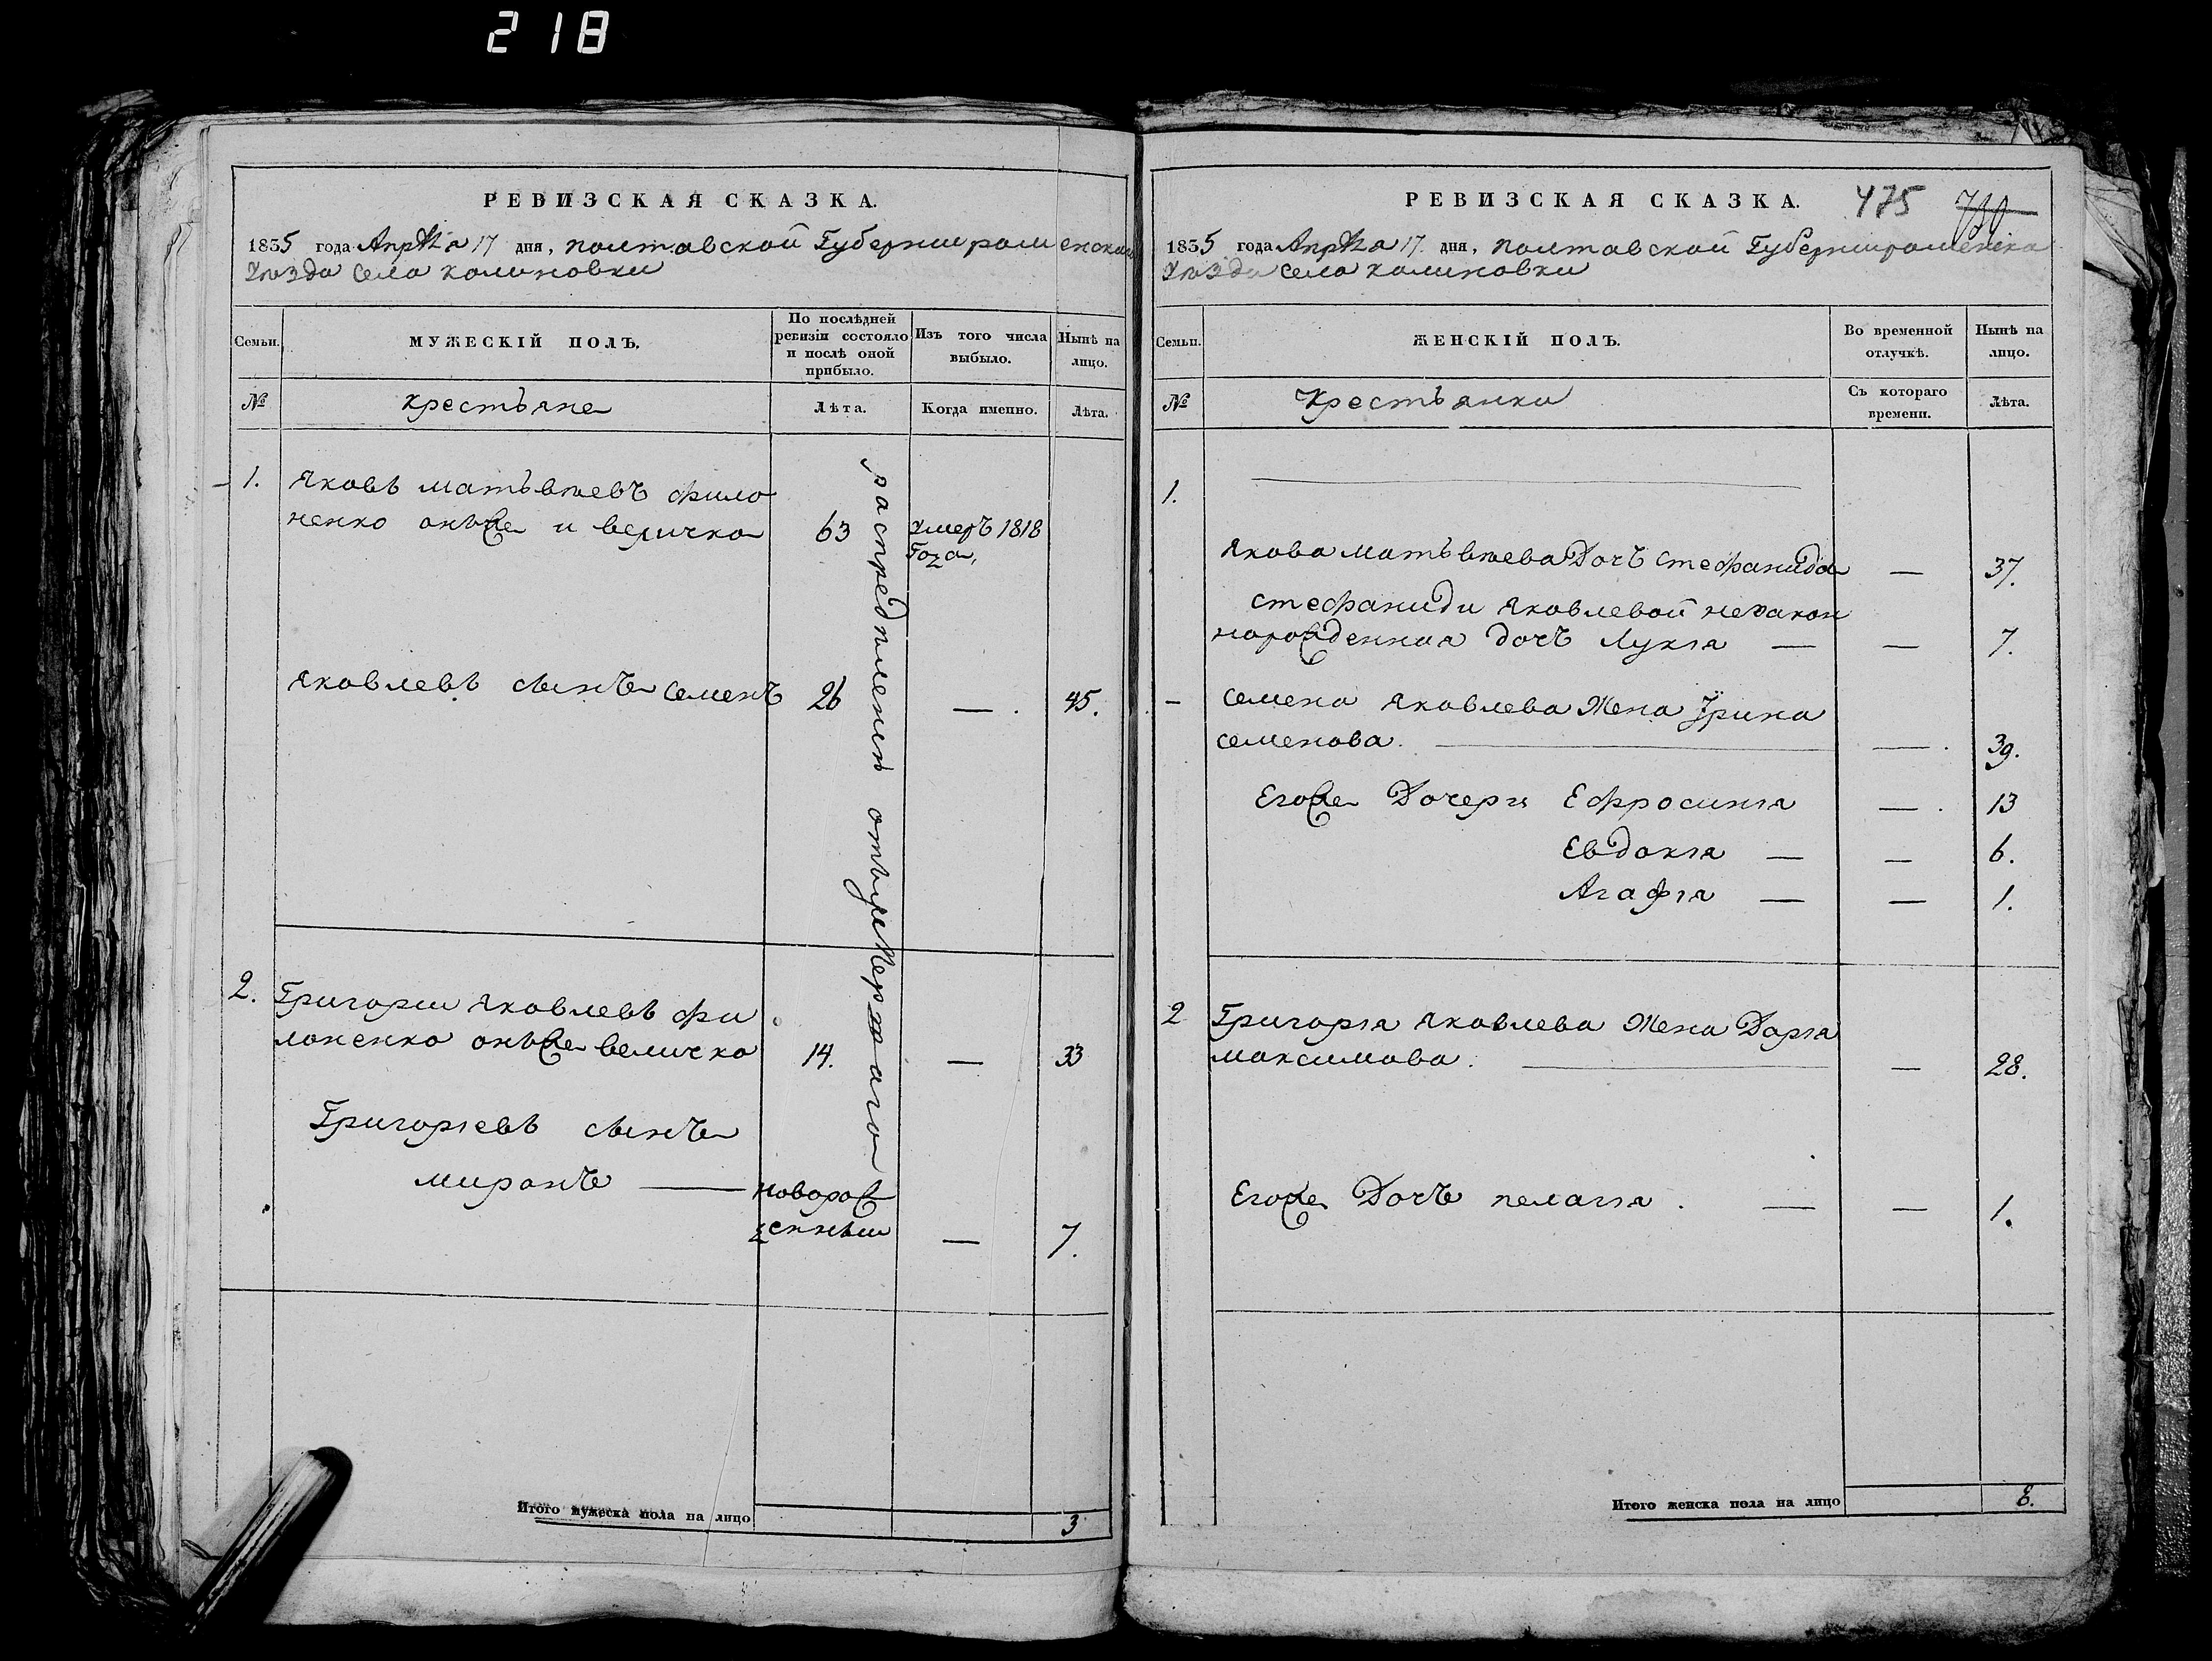 218
РЕВИЗСКАЯ СКАЗКА.
1835 года Апрѣля 17 дня, полтавской Губернии роменскаго
Уѣзда села калиновки
Семьи.
МУЖЕСКІЙ ПОЛЪ.
По послѣдней ревизіи состояло и послѣ оной прибыло.
Изъ того числа выбыло.
Нынѣ на лицо.
№
крестьяне
Лѣта.
Когда именно.
Лѣта.
1. Яковъ матъвѣевъ фило
ненко онъже и величко 63 умеръ 1818
Года,
Яковлевъ сынъ семенъ 26 — 45.
2. Григории Яковлевъ фи
лоненко онъже величко 14. — 33
Григориевъ сынъ
миронъ — новорож
денныи — 7.
Итого мужеска пола на лицо 3
РЕВИЗСКАЯ СКАЗКА.
475
1835 года Апрѣля 17 дня, полтавской Губернии роменска
Уѣзда села калиновки
Семьи.
ЖЕНСКІЙ ПОЛЪ.
Во временной отлучкѣ.
Нынѣ на лицо.
№
Крестьянки
Съ котораго времени.
Лѣта.
1.
Якова матъвѣева Дочъ стефанида — 37.
стефаниди Яковлевой незакон
норожденная дочъ Лукія — — 7.
семена Яковлева Жена Ірина
семенова. — 39.
Егоже Дочери Ефросинія — 13
Евдокія — — 6.
Агафія — — 1.
2 Григорія Яковлева Жена Дарія
максимова. — 28.
Егоже Дочъ пелагія. — — 1.
Итого женска пола на лицо 8.